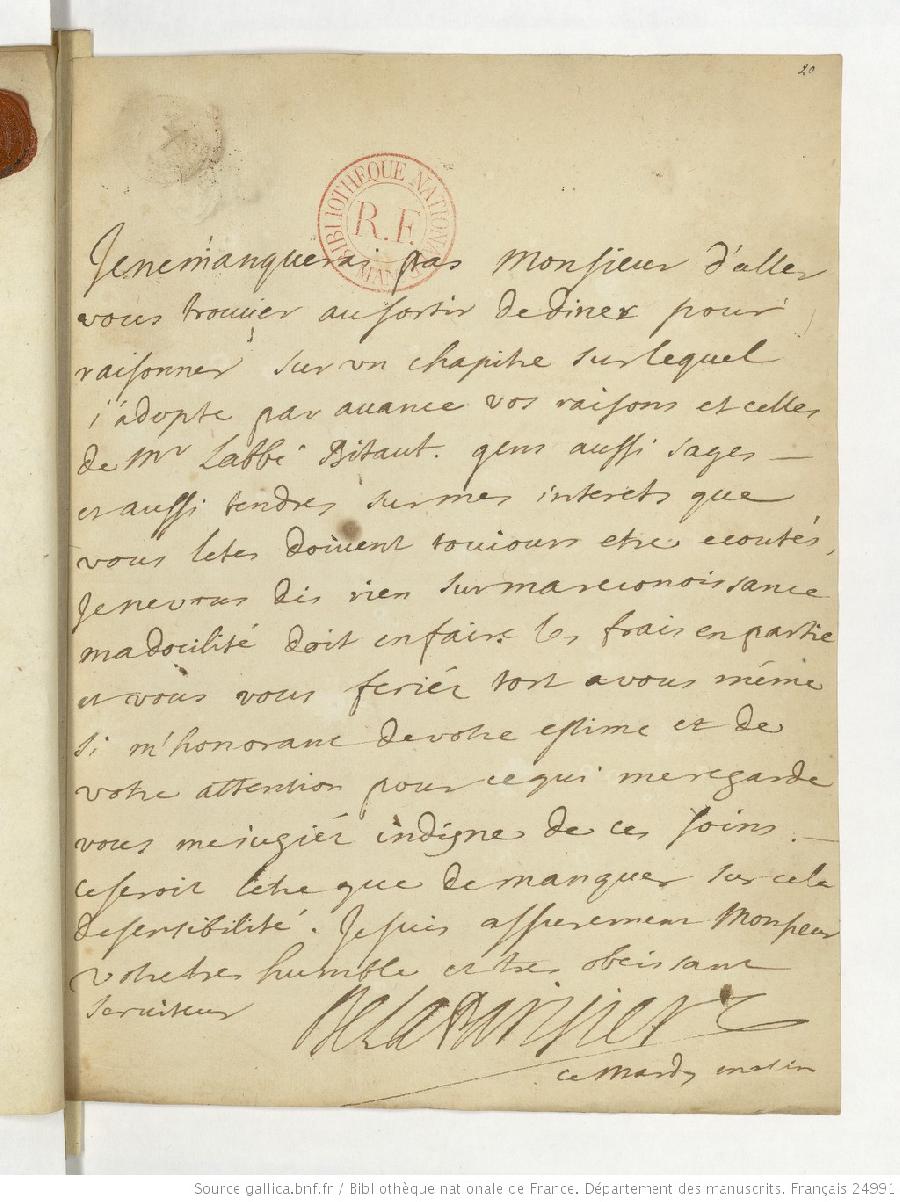 20
BIBLIOTHEQUE NATIONALE
R.F.
MANUSCRITS
Jenemanquerai pas Monsieur d'aller
vous trouuer au sortir dediner pour
raisonner sur vn chapitre surlequel
j'adopte par auance vos raisons et celles
de Mr Labbé Bitaut. gens aussi sages
et aussi tendres surmes interets que
vous letes doiuent toujours etre ecoutés,
Jenevous dis rien surmareconoissance
madocilité doit enfaire les frais enpartie
et vous vous feriéz tort avous méme
si m'honorant devotre estime et de
votre attention pour cequi meregarde
vous mejugiéz indigne de ces soins.
ceseroit letre que demanquer sur cela
desensibilité. Jesuis assurement Monsieur
votretres humble et tres obeissant
seruiteur
ce Mardy matin
Source gallica.bnf.fr / Bibliothèque nationale de France. Département des manuscrits. Français 24991